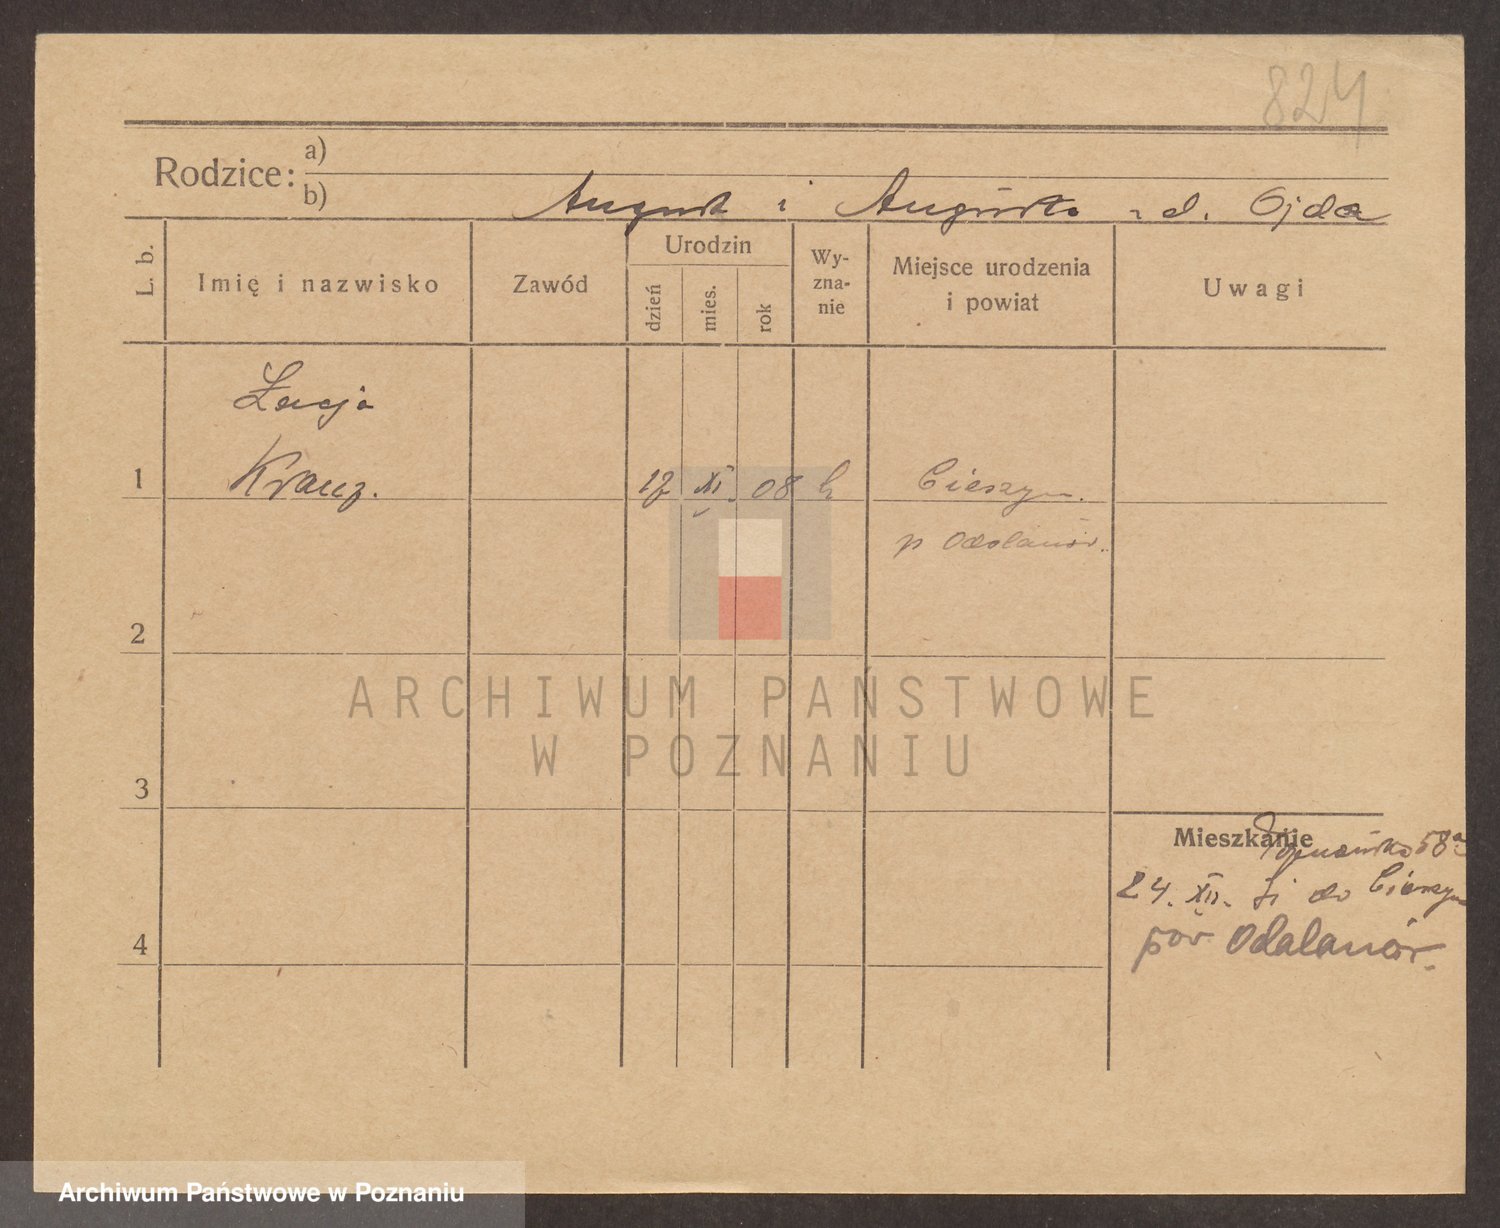 824
Rodzice: a)
b) August i Augusta z d. Ojda
L. b.
Imię i nazwisko
Zawód
Urodzin
dzień
mies.
rok
Wy-
zna-
nie
Miejsce urodzenia
i powiat
Uwagi
Łucja
1 Kranz. XI. 08 Cieszyn.
p Odolanów.
2
ARCHIWUM PAŃSTWOWE
W POZNANIU
3
Mieszkanie
Poznańska 58a
24. XII. do Cieszyn
4 pow Odalanów.
Archiwum Państwowe w Poznaniu